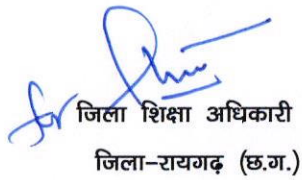 for
जिला शिक्षा अधिकारी
जिला-रायगढ़ (छ.ग.)